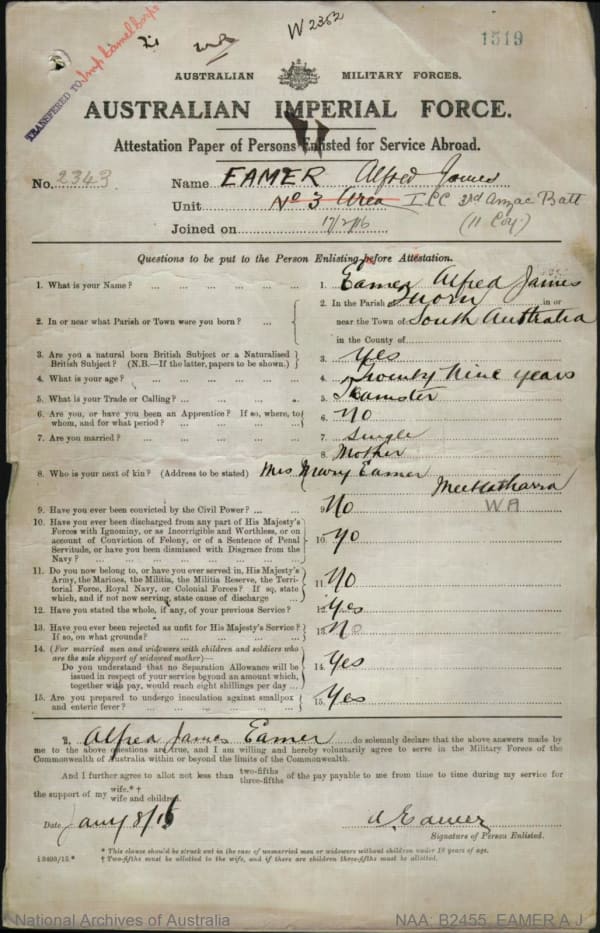 W2362
1519
TRANSFERRED TO Imp Camel Corps
AUSTRALIAN MILITARY FORCES.
AUSTRALIAN IMPERIAL FORCE.
Attestation Paper of Persons Enlisted for Service Abroad.
No. 2343 Name EAMER Alfred James
Unit No 3 Area I.C.C 3rd Anzac Batt
Joined on 17/2/16 (11 Coy.)
Questions to be put to the Person Enlisting before Attestation.
1. What is your Name? ... ... ... 1. Eamer Alfred James
2. In or near what Parish or Town were you born? ... 2. In the Parish of Quorn in or
near the Town of South Australia
in the County of
3. Are you a natural born British Subject or a Naturalised
British Subject? (N.B.—If the latter, papers to be shown.) 3. Yes
4. What is your age? ... 4. Twenty Nine years
5. What is your Trade or Calling? ... 5. Teamster
6. Are you, or have you been an Apprentice? If so, where, to
whom, and for what period? ... 6. No
7. Are you married? ... 7. Single
8. Mother
8. Who is your next of kin? (Address to be stated) Mrs Mary Eamer
Meekatharra
W.A
9. Have you ever been convicted by the Civil Power? ... 9. No
10. Have you ever been discharged from any part of His Majesty's
Forces with Ignominy, or as Incorrigible and Worthless, or on
account of Conviction of Felony, or of a Sentence of Penal
Servitude, or have you been dismissed with Disgrace from the
Navy? ... 10. No
11. Do you now belong to, or have you ever served in, His Majesty's
Army, the Marines, the Militia, the Militia Reserve, the Terri-
torial Force, Royal Navy, or Colonial Forces? If so, state
which, and if not now serving, state cause of discharge ... 11. No
12. Have you stated the whole, if any, of your previous Service? 12. Yes
13. Have you ever been rejected as unfit for His Majesty's Service?
If so, on what grounds? ... 13. No
14. (For married men and widowers with children and soldiers who
are the sole support of widowed mother)—
Do you understand that no Separation Allowance will be
issued in respect of your service beyond an amount which,
together with pay, would reach eight shillings per day ... 14. Yes
15. Are you prepared to undergo inoculation against smallpox
and enteric fever? ... 15. Yes
I, Alfred James Eamer do solemnly declare that the above answers made by
me to the above questions are true, and I am willing and hereby voluntarily agree to serve in the Military Forces of the
Commonwealth of Australia within or beyond the limits of the Commonwealth.
And I further agree to allot not less than two-fifths three-fifths of the pay payable to me from time to time during my service for
the support of my wife.*† wife and children.
Date Jany 8/16 A Eamer
Signature of Person Enlisted.
* This clause should be struck out in the case of unmarried men or widowers without children under 18 years of age.
† Two-fifths must be allotted to the wife, and if there are children three-fifths must be allotted.
National Archives of Australia NAA: B2455, EAMER A J